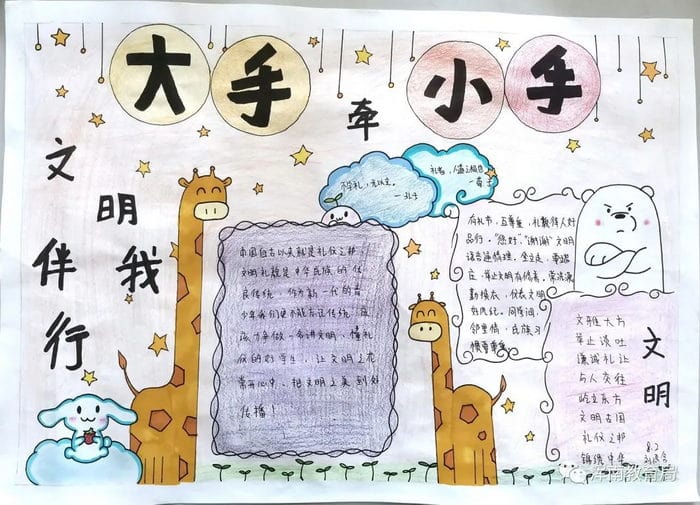 大手
牵
小手
文明
伴我
行
不学礼，无以立。
—孔子
礼者，人道之极也
—荀子
中国自古以来就是礼仪之邦，
文明礼貌是中华民族的优
良传统，作为新一代的青
少年我们更不能忘记传统，应
该力争做一名讲文明，懂礼
仪的好学生，让文明之花
常开心中，把文明之美到处
传播！
有礼节，互尊重，礼貌待人好
品行。"您好""谢谢"文明
语言通情理。
举止文明有修养。
勤换衣，仪表文明
好风纪。同学间
邻里情，民族习
惯要尊重
文雅大方
举止谈吐
谦诚礼让
与人交往
屹立东方
文明古国
礼仪之邦
锦绣中华
文明
8.2
军南教育局